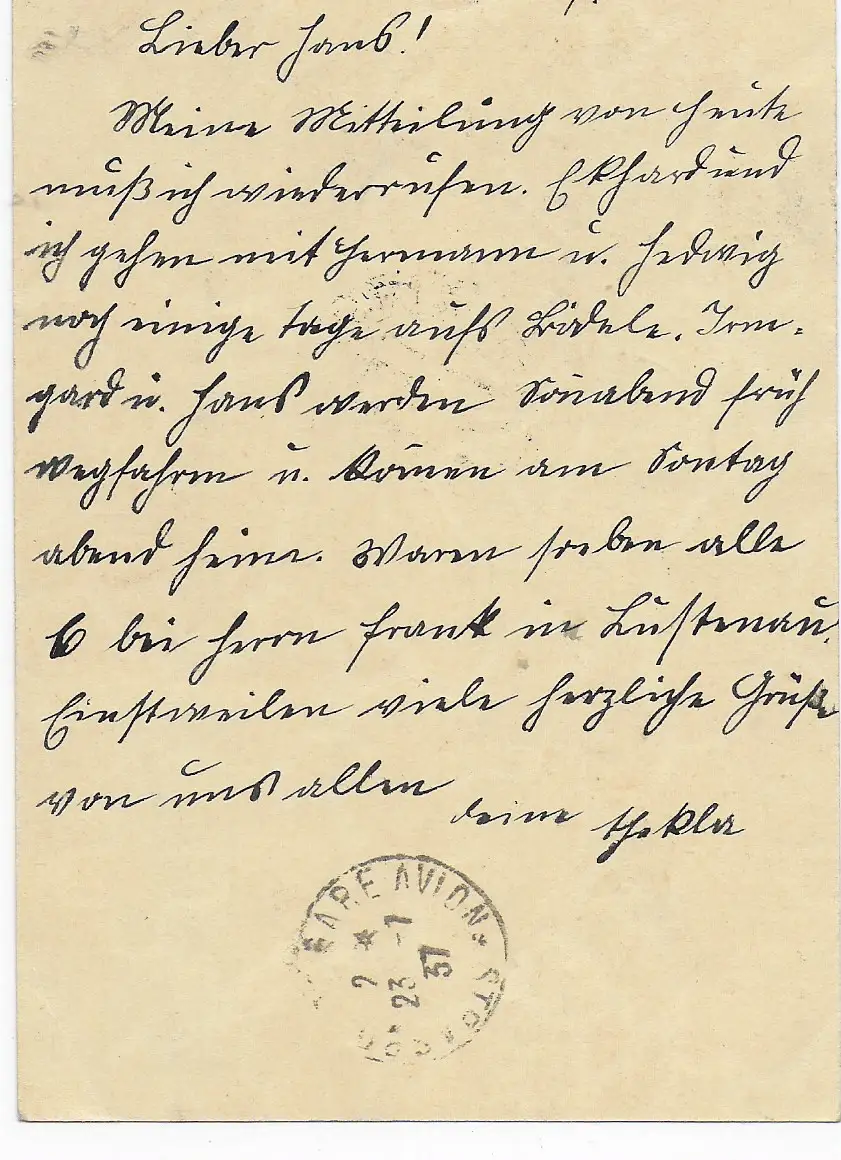 Lieber Hans!
Meine Mitteilung von heute
muß ich wiederrufen. Ekhard und
ich gehen mit Hermann u. Hedwig
noch einige Tage aufs Bödele. Irm-
gard u. Hans werden Son̄abend früh
wegfahren u. kom̄en am Sontag
abend heim. Waren soeben alle
6 bei Herrn Frank in Lustenau.
Einstweilen viele herzliche Grüße
von uns allen
deine Thekla
GARE AVION
2
23 -1
37